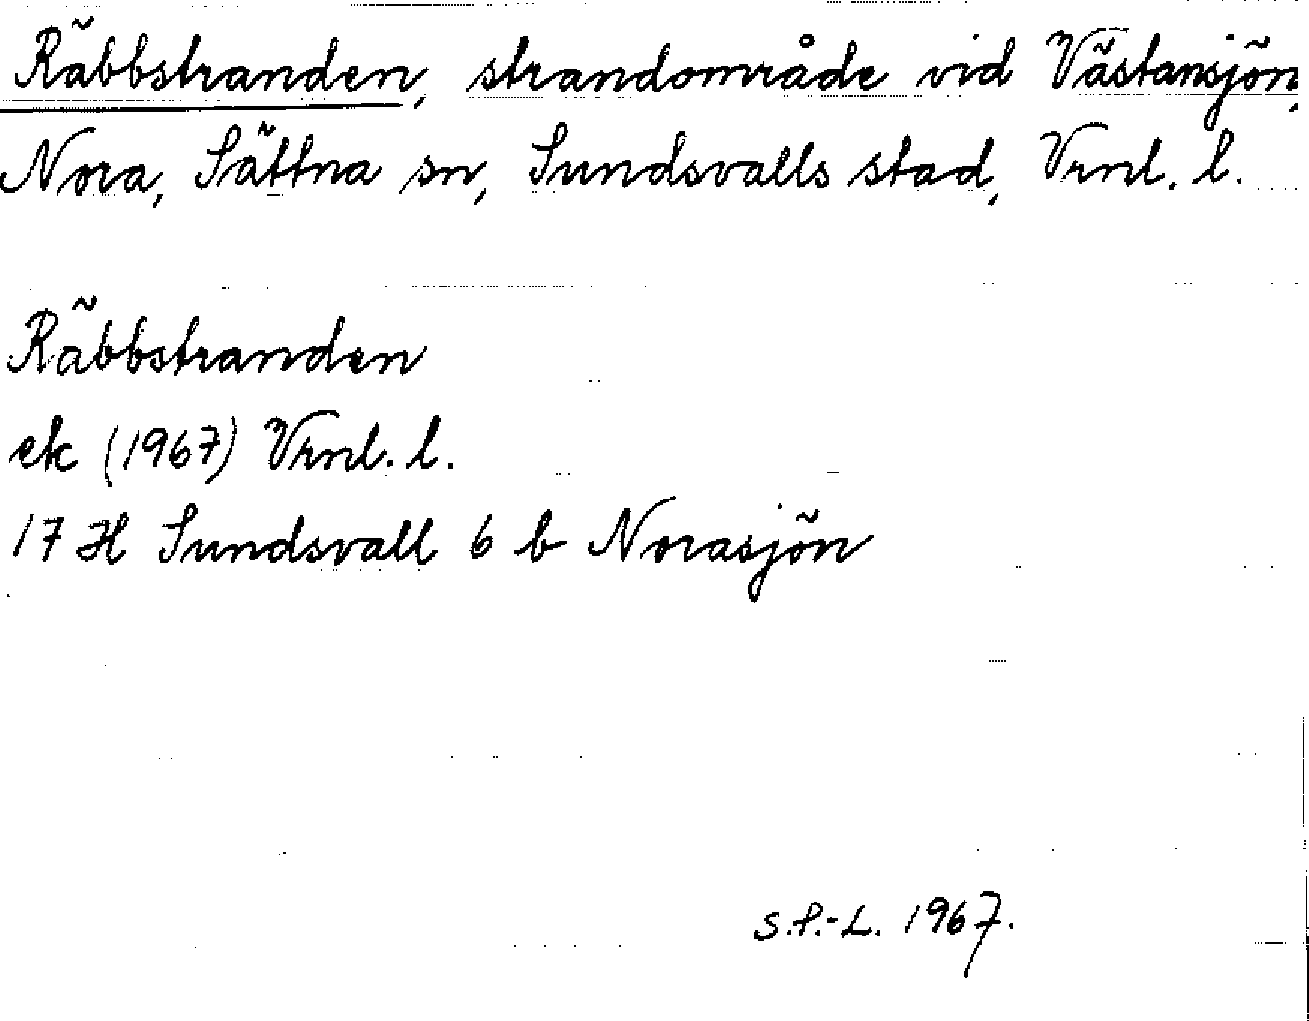 Räbbstranden, strandområde vid Västansjön,
Nora, Sättna sn, Sundsvalls stad, Vrnl. l.
Räbbstranden
ek (1967) Vrnl. l.
17 H Sundsvall 6 b Norasjön
S.P.-L. 1967.